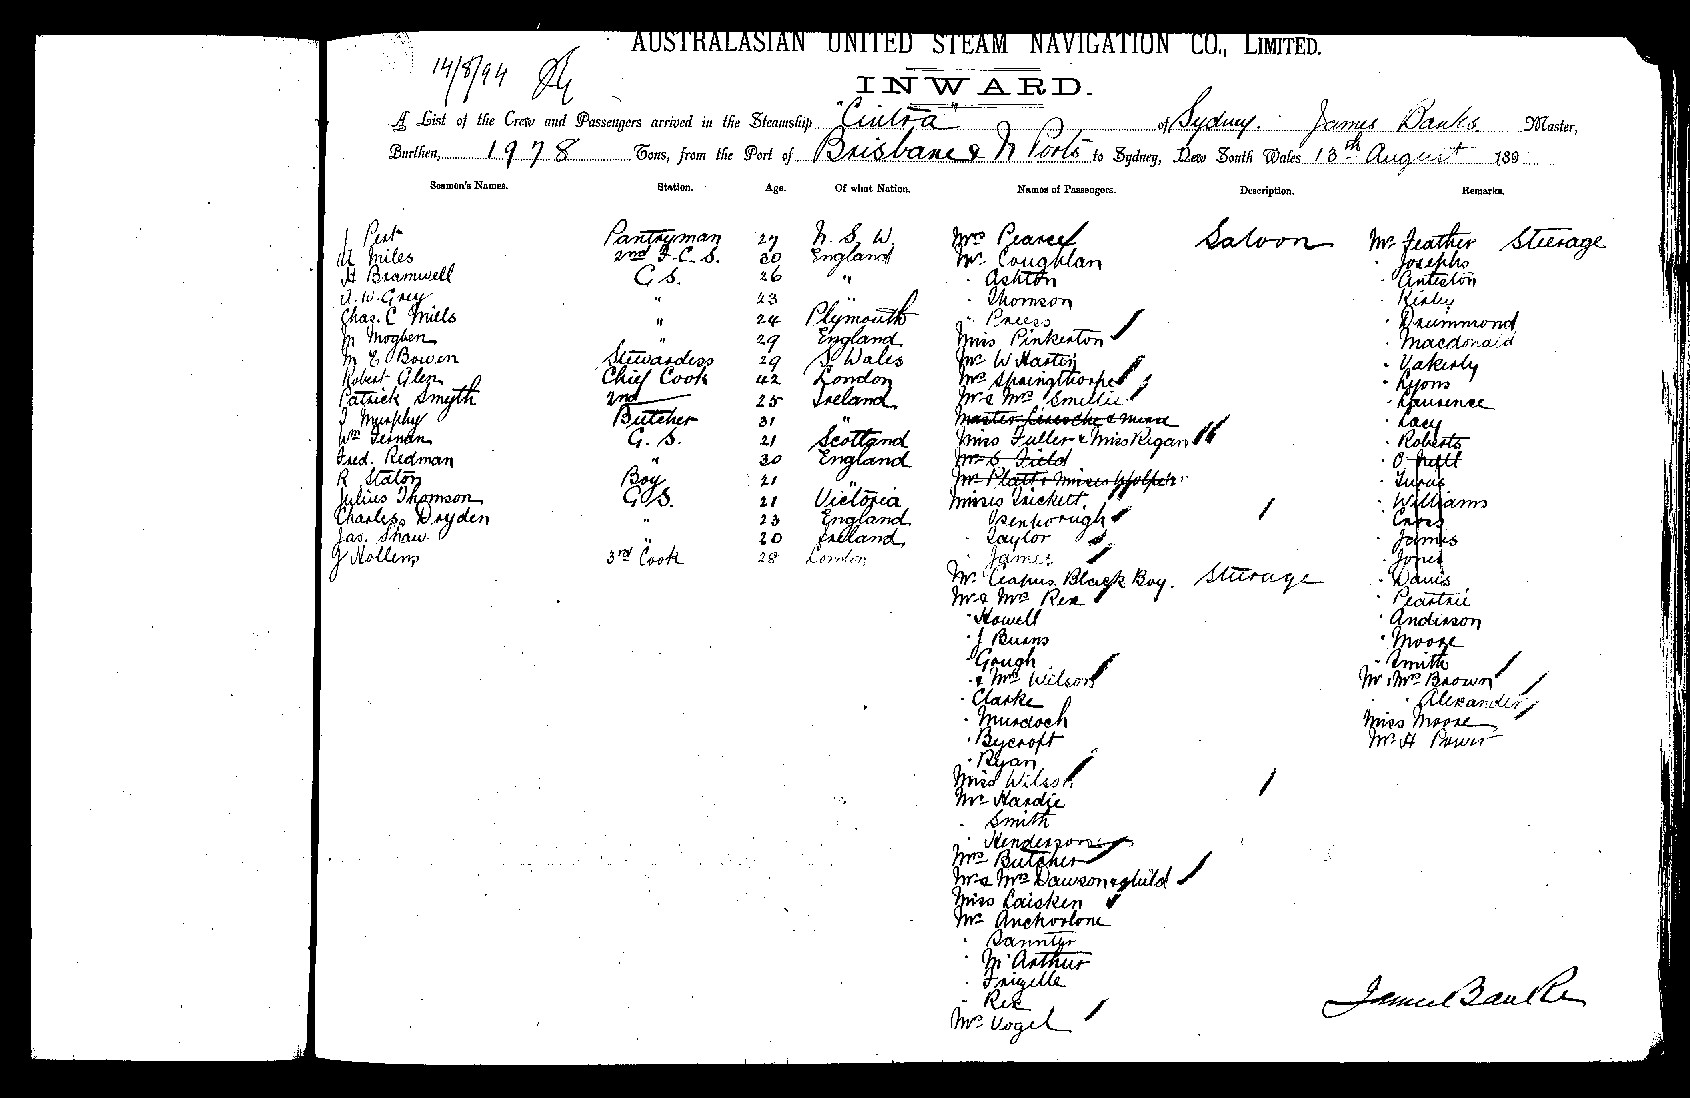 AUSTRALASIAN UNITED STEAM NAVIGATION CO., LIMITED.
14/8/94
INWARD.
A List of the Crew and Passengers arrived in the Steamship "Cintra" of Sydney. James Banks Master,
Burthen, 1978 Tons, from the Port of Brisbane & N Ports to Sydney, New South Wales 13th August 189
Seamen's Names. Station. Age. Of what Nation. Names of Passengers. Description. Remarks.
J Pert Pantryman 27 N. S. W. Mrs Pearce Saloon Mr Feather Steerage
Miles 2nd F.C.S. 30 England Mr Coughlan " Josephs
H Bramwell G.S. 26 " " Ashton "
A. W. Grey " 23 " " Thomson " Kirley
Chas. C Mills " 24 Plymouth " Preess " Drummond
M Mogben " 29 England Miss Pinkerton " Macdonald
M E Bowen Stewardess 29 S Wales Mr W Harton " Vakerly
Robert Glen Chief Cook 42 London Mrs Springthorpe " Lyons
Patrick Smyth 2nd 25 Ireland Mr & Mrs Smellie " Laurence
J Murphy Butcher 31 " Master " Lacy
Wm Fernan G. S. 21 Scotland Miss Fuller & Miss Regan " Roberts
Fred. Redman " 30 England Mr S Field "
R Staton Boy 21 " Mr Platt & Misses "
Julius Thomson G.S. 21 Victoria Misses Trickett. " Williams
Charles Dryden " 23 England Isenborough " Cross
Jas. Shaw " 20 Ireland " Taylor " James
J Hollems 3rd Cook 28 London " James " Jones
Mr Black Boy. Steerage " Davis
Mr & Mrs Rex " Peartree
" Howell " Anderson
" J Burns " Moore
" Gough " Smith
" & Mrs Wilson Mr & Mrs Brown
" Clarke " Alexander
" Murdoch Miss Moore
" Bycroft Mr H Power
" Ryan
Miss Wilson
Mr Hardie
" Smith
" Henderson
Mrs Butcher
Mr & Mrs Dawson & child
Miss Laisken
Mr
"
" McArthur
" Frizelle
" Rex
Mrs Vogel
James Banks